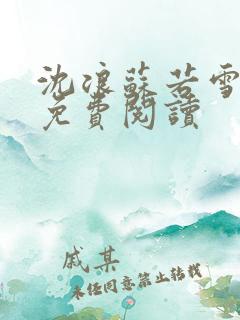 沈浪蘇若雪
免費閱讀
戚某
未经同意禁止转载